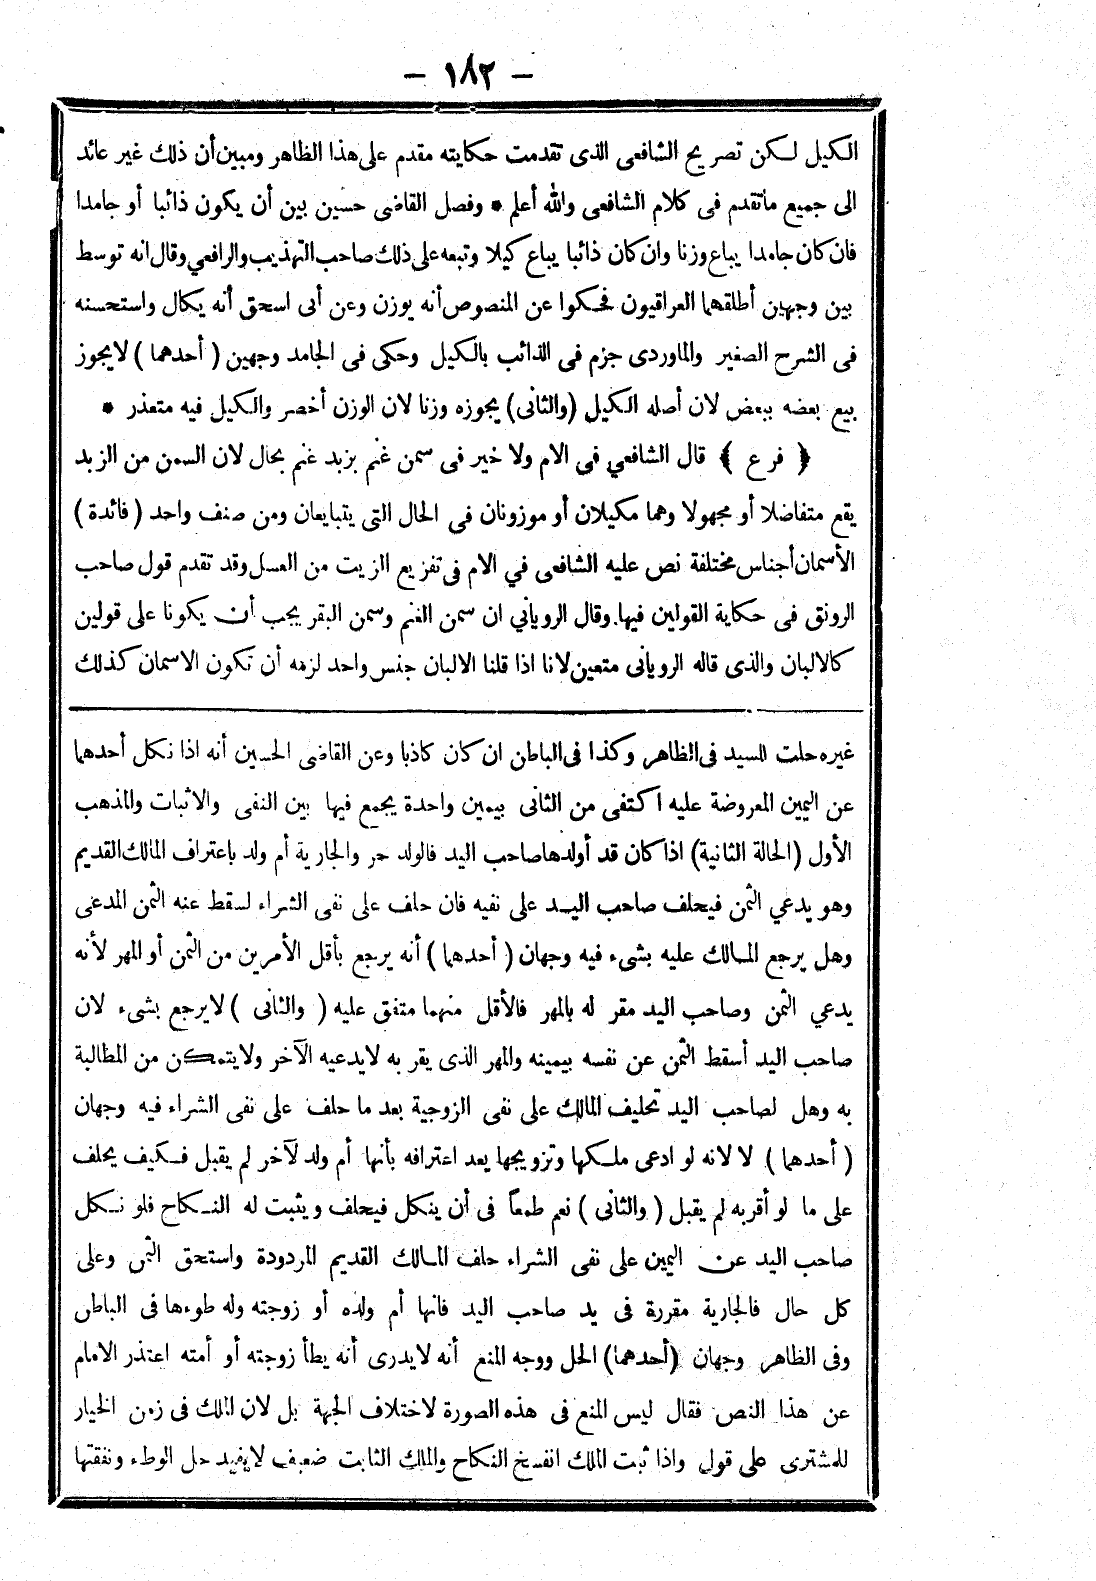 – ١٨٢ –
الكيل لكن تصريح الشافعى الذى تقدمت حكايته مقدم على هذا الظاهر ومبين أن ذلك غير عائد
الى جميع ماتقدم فى كلام الشافعى والله أعلم * وفصل القاضى حسين بين أن يكون ذائبا أو جامدا
فان كان جامدا يباع وزنا وان كان ذائبا يباع كيلا وتبعه على ذلك صاحب التهذيب والرافعي وقال انه توسط
بين وجهين أطلقهما العراقيون فحكوا عن المنصوص أنه يوزن وعن أبى اسحق أنه يكال واستحسنه
فى الشرح الصغير والماوردى جزم فى الذائب بالكيل وحكى فى الجامد وجهين ( أحدهما ) لايجوز
بيع بعضه ببعض لان أصله الكيل (والثانى) يجوزه وزنا لان الوزن أخصر والكيل فيه متعذر *
﴿ فرع ﴾ قال الشافعي فى الام ولا خير فى سمن غنم بزبد غنم بحال لان السمن من الزبد
يقع متفاضلا أو مجهولا وهما مكيلان أو موزونان فى الحال التى يتبايعان ومن صنف واحد ( فائدة )
الأسمان أجناس مختلفة نص عليه الشافعى في الام فى تفزيع الزيت من العسل وقد تقدم قول صاحب
الرونق فى حكاية القولين فيها. وقال الروياني ان سمن الغنم وسمن البقر يجب أن يكونا على قولين
كالالبان والذى قاله الرويانى متعين لانا اذا قلنا الالبان جنس واحد لزمه أن تكون الاسمان كذلك
غيره حلت للسيد فى الظاهر وكذا فى الباطن ان كان كاذبا وعن القاضى الحسين أنه اذا نكل أحدهما
عن اليمين المعروضة عليه اكتفى من الثانى بيمين واحدة يجمع فيها بين النفى والاثبات والمذهب
الأول (الحالة الثانية) اذا كان قد أولدها صاحب اليد فالولد حر والجارية أم ولد باعتراف المالك القديم
وهو يدعي الثمن فيحلف صاحب اليد على نفيه فان حلف على نفى الشراء لسقط عنه الثمن المدعى
وهل يرجع المالك عليه بشىء فيه وجهان ( أحدهما ) أنه يرجع بأقل الأمرين من الثمن أو المهر لأنه
يدعي الثمن وصاحب اليد مقر له بالمهر فالأقل منهما متفق عليه ( والثانى ) لايرجع بشىء لان
صاحب اليد أسقط الثمن عن نفسه بيمينه والمهر الذى يقر به لايدعيه الآخر ولايتمكن من المطالبة
به وهل لصاحب اليد تحليف المالك على نفى الزوجية بعد ما حلف على نفى الشراء فيه وجهان
( أحدهما ) لا لانه لو ادعى ملكها وتزويجها بعد اعترافه بأنها أم ولد لآخر لم يقبل فكيف يحلف
على ما لو أقربه لم يقبل ( والثانى ) نعم طمعاً فى أن ينكل فيحلف ويثبت له النكاح فلو نكل
صاحب اليد عن اليمين على نفى الشراء حلف المالك القديم المردودة واستحق الثمن وعلى
كل حال فالجارية مقررة فى يد صاحب اليد فانها أم ولده أو زوجته وله طوءها فى الباطن
وفى الظاهر وجهان (أحدهما) الحل ووجه المنع أنه لايدرى أنه يطأ زوجته أو أمته اعتذر الامام
عن هذا النص فقال ليس المنع فى هذه الصورة لاختلاف الجهة بل لان الملك فى زمن الخيار
للمشترى على قول واذا ثبت الملك انفسخ النكاح والملك الثابت ضعيف لايفيد حل الوطء ونفقتها